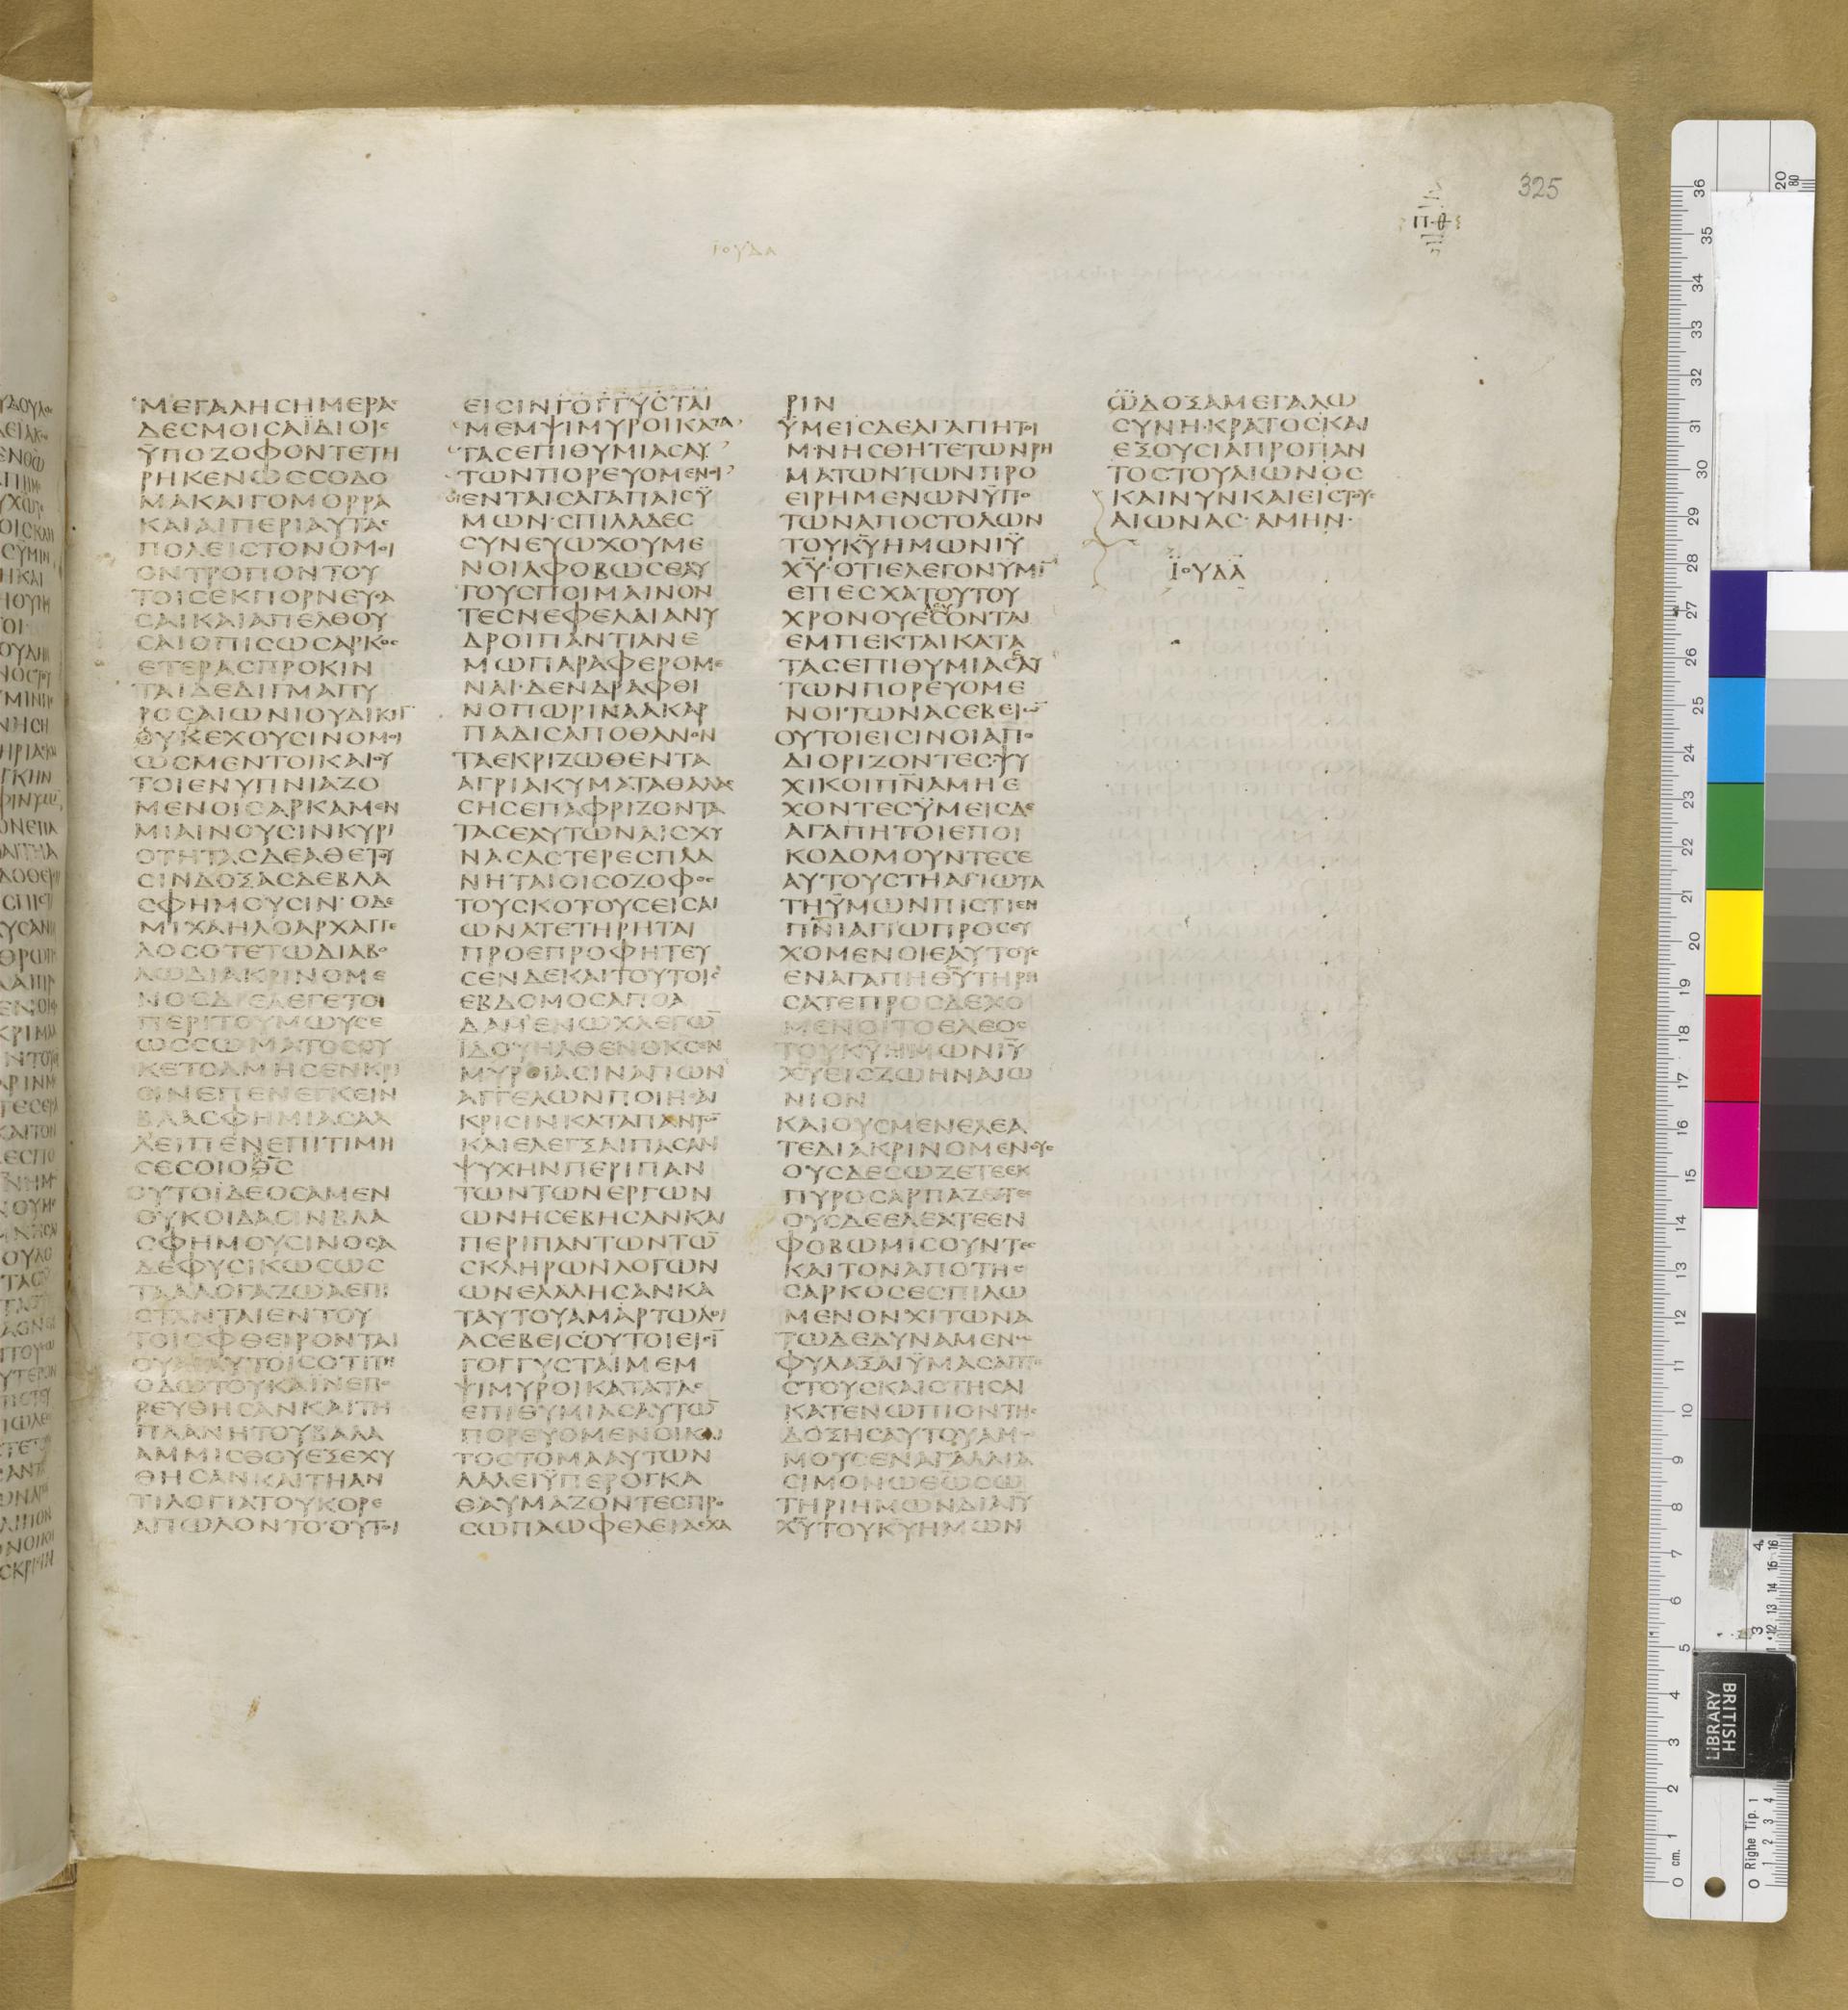 325
ΠΦ
ΪΟΥΔΑ
ΜΕΓΑΛΗCΗΜΕΡΑ
ΔΕCΜΟΙCΑΪΔΙΟΙC
ΫΠΟΖΟΦΟΝΤΕΤΗ
ΡΗΚΕΝΩCCΟΔΟ
ΜΑΚΑΙΓΟΜΟΡΡΑ
ΚΑΙΑΙΠΕΡΙΑΥΤΑC
ΠΟΛΕΙCΤΟΝΟΜΟΙ
ΟΝΤΡΟΠΟΝΤΟΥ
ΤΟΙCΕΚΠΟΡΝΕΥCΑ
CΑΙΚΑΙΑΠΕΛΘΟΥ
CΑΙΟΠΙCΩCΑΡΚΟC
ΕΤΕΡΑCΠΡΟΚΙΝ
ΤΑΙΔΕΔΙΓΜΑΠΥ
ΡΟCΑΙΩΝΙΟΥΔΙΚΗΝ
ΟΥΚΕΧΟΥCΙΝΟΜΟΙ
ΩCΜΕΝΤΟΙΚΑΙΟΥ
ΤΟΙΕΝΥΠΝΙΑΖΟ
ΜΕΝΟΙCΑΡΚΑΜΕΝ
ΜΙΑΙΝΟΥCΙΝΚΥΡΙ
ΟΤΗΤΑCΔΕΑΘΕΤΟΥ
CΙΝΔΟΞΑCΔΕΒΛΑ
CΦΗΜΟΥCΙΝ·ΟΔΕ
ΜΙΧΑΗΛΟΑΡΧΑΓΓΕ
ΛΟCΟΤΕΤΩΔΙΑΒΟ
ΛΩΔΙΑΚΡΙΝΟΜΕ
ΝΟCΔΙΕΛΕΓΕΤΟ
ΠΕΡΙΤΟΥΜΩΥCΕ
ΩCCΩΜΑΤΟCΟΥ
ΚΕΤΟΛΜΗCΕΝΚΡΙ
CΙΝΕΠΕΝΕΓΚΕΙΝ
ΒΛΑCΦΗΜΙΑCΑΛ
ΛΕΙΠΕΝΕΠΙΤΙΜΗ
CΕCΟΙΟΘC
ΟΥΤΟΙΔΕΟCΑΜΕΝ
ΟΥΚΟΙΔΑCΙΝΒΛΑ
CΦΗΜΟΥCΙΝΟCΑ
ΔΕΦΥCΙΚΩCΩC
ΤΑΑΛΟΓΑΖΩΑΕΠΙ
CΤΑΝΤΑΙΕΝΤΟΥ
ΤΟΙCΦΘΕΙΡΟΝΤΑΙ
ΟΥΑΙΑΥΤΟΙCΟΤΙΤΗ
ΟΔΩΤΟΥΚΑΪΝΕΠΟ
ΡΕΥΘΗCΑΝΚΑΙΤΗ
ΠΛΑΝΗΤΟΥΒΑΛΑ
ΑΜΜΙCΘΟΥΕΞΕΧΥ
ΘΗCΑΝΚΑΙΤΗΑΝ
ΤΙΛΟΓΙΑΤΟΥΚΟΡΕ
ΑΠΩΛΟΝΤΟΟΥΤΟΙ
ΕΙCΙΝΓΟΓΓΥCΤΑΙ
ΜΕΜΨΙΜΥΡΟΙΚΑΤΑ
ΤΑCΕΠΙΘΥΜΙΑCΑΥ
ΤΩΝΠΟΡΕΥΟΜΕΝΟΙ
ΟΙΕΝΤΑΙCΑΓΑΠΑΙCΫ
ΜΩΝ·CΠΙΛΑΔΕC
CΥΝΕΥΩΧΟΥΜΕ
ΝΟΙΑΦΟΒΩCΕΑΥ
ΤΟΥCΠΟΙΜΑΙΝΟΝ
ΤΕCΝΕΦΕΛΑΙΑΝΥ
ΔΡΟΙΠΑΝΤΙΑΝΕ
ΜΩΠΑΡΑΦΕΡΟΜΕ
ΝΑΙ·ΔΕΝΔΡΑΦΘΙ
ΝΟΠΩΡΙΝΑΑΚΑΡ
ΠΑΔΙCΑΠΟΘΑΝΟΝ
ΤΑΕΚΡΙΖΩΘΕΝΤΑ
ΑΓΡΙΑΚΥΜΑΤΑΘΑΛΑC
CΗCΕΠΑΦΡΙΖΟΝΤΑ
ΤΑCΕΑΥΤΩΝΑΙCΧΥ
ΝΑCΑCΤΕΡΕCΠΛΑ
ΝΗΤΑΙΟΙCΟΖΟΦΟC
ΤΟΥCΚΟΤΟΥCΕΙCΑΙ
ΩΝΑΤΕΤΗΡΗΤΑΙ
ΠΡΟΕΠΡΟΦΗΤΕΥ
CΕΝΔΕΚΑΙΤΟΥΤΟΙC
ΕΒΔΟΜΟCΑΠΟΑ
ΔΑΜΕΝΩΧΛΕΓΩ̅
ΙΔΟΥΗΛΘΕΝΟΚC̅Ν
ΜΥΡΙΑCΙΝΑΓΙΩΝ
ΑΓΓΕΛΩΝΠΟΙΗCΑΙ
ΚΡΙCΙΝΚΑΤΑΠΑΝΤΩ̅
ΚΑΙΕΛΕΓΞΑΙΠΑCΑΝ
ΨΥΧΗΝΠΕΡΙΠΑΝ
ΤΩΝΤΩΝΕΡΓΩΝ
ΩΝΗCΕΒΗCΑΝΚΑΙ
ΠΕΡΙΠΑΝΤΩΝΤΩ̅
CΚΛΗΡΩΝΛΟΓΩΝ
ΩΝΕΛΑΛΗCΑΝΚΑ
ΤΑΥΤΟΥΑΜΑΡΤΩΛΟΙ
ΑCΕΒΕΙCΟΥΤΟΙΕΙCΙ̅
ΓΟΓΓΥCΤΑΙΜΕΜ
ΨΙΜΥΡΟΙΚΑΤΑΤΑC
ΕΠΙΘΥΜΙΑCΑΥΤΩ̅
ΠΟΡΕΥΟΜΕΝΟΙΚΑΙ
ΤΟCΤΟΜΑΑΥΤΩΝ
ΛΑΛΕΙΫΠΕΡΟΓΚΑ
ΘΑΥΜΑΖΟΝΤΕCΠΡΟ
CΩΠΑΩΦΕΛΕΙΑCΧΑ
ΡΙΝ
ΫΜΕΙCΔΕΑΓΑΠΗΤΟΙ
ΜΝΗCΘΗΤΕΤΩΝΡΗ
ΜΑΤΩΝΤΩΝΠΡΟ
ΕΙΡΗΜΕΝΩΝΫΠΟ
ΤΩΝΑΠΟCΤΟΛΩΝ
ΤΟΥΚΥ̅ΗΜΩΝΙΥ̅
ΧΥ̅·ΟΤΙΕΛΕΓΟΝΥΜΙ̅
ΕΠΕCΧΑΤΟΥΤΟΥ
ΧΡΟΝΟΥΕCΟΝΤΑΙ
ΕΜΠΕΚΤΑΙΚΑΤΑ
ΤΑCΕΠΙΘΥΜΙΑCΑΥ
ΤΩΝΠΟΡΕΥΟΜΕ
ΝΟΙΤΩΝΑCΕΒΕΙΩ̅
ΟΥΤΟΙΕΙCΙΝΟΙΑΠΟ
ΔΙΟΡΙΖΟΝΤΕCΨΥ
ΧΙΚΟΙΠΝ̅ΑΜΗΕ
ΧΟΝΤΕCΫΜΕΙCΔΕ
ΑΓΑΠΗΤΟΙΕΠΟΙ
ΚΟΔΟΜΟΥΝΤΕCΕ
ΑΥΤΟΥCΤΗΑΓΙΩΤΑ
ΤΗΫΜΩΝΠΙCΤΙΕΝ
ΠΝ̅ΙΑΓΙΩΠΡΟCΕΥ
ΧΟΜΕΝΟΙΕΑΥΤΟΥC
ΕΝΑΓΑΠΗΘΥ̅ΤΗΡΗ
CΑΤΕΠΡΟCΔΕΧΟ
ΜΕΝΟΙΤΟΕΛΕΟC
ΤΟΥΚΥ̅ΗΜΩΝΙΥ̅
ΧΥ̅ΕΙCΖΩΗΝΑΙΩ
ΝΙΟΝ
ΚΑΙΟΥCΜΕΝΕΛΕΑ
ΤΕΔΙΑΚΡΙΝΟΜΕΝΟΥC
ΟΥCΔΕCΩΖΕΤΕΕΚ
ΠΥΡΟCΑΡΠΑΖΟΝΤΕC
ΟΥCΔΕΕΛΕΑΤΕΕΝ
ΦΟΒΩΜΙCΟΥΝΤΕC
ΚΑΙΤΟΝΑΠΟΤΗC
CΑΡΚΟCΕCΠΙΛΩ
ΜΕΝΟΝΧΙΤΩΝΑ
ΤΩΔΕΔΥΝΑΜΕΝΩ
ΦΥΛΑΞΑΙΫΜΑCΑΠΤΑΙ
CΤΟΥCΚΑΙCΤΗCΑΙ
ΚΑΤΕΝΩΠΙΟΝΤΗC
ΔΟΞΗCΑΥΤΟΥΑΜΩ
ΜΟΥCΕΝΑΓΑΛΛΙΑ
CΙΜΟΝΩΘΩ̅CΩ
ΤΗΡΙΗΜΩΝΔΙΑΙΥ̅
ΧΥ̅ΤΟΥΚΥ̅ΗΜΩΝ
ΩΔΟΞΑΜΕΓΑΛΩ
CΥΝΗ·ΚΡΑΤΟCΚΑΙ
ΕΞΟΥCΙΑΠΡΟΠΑΝ
ΤΟCΤΟΥΑΙΩΝΟC
ΚΑΙΝΥΝΚΑΙΕΙCΤΟΥC
ΑΙΩΝΑC·ΑΜΗΝ·
ΪΟΥΔΑ
BRITISH
LIBRARY